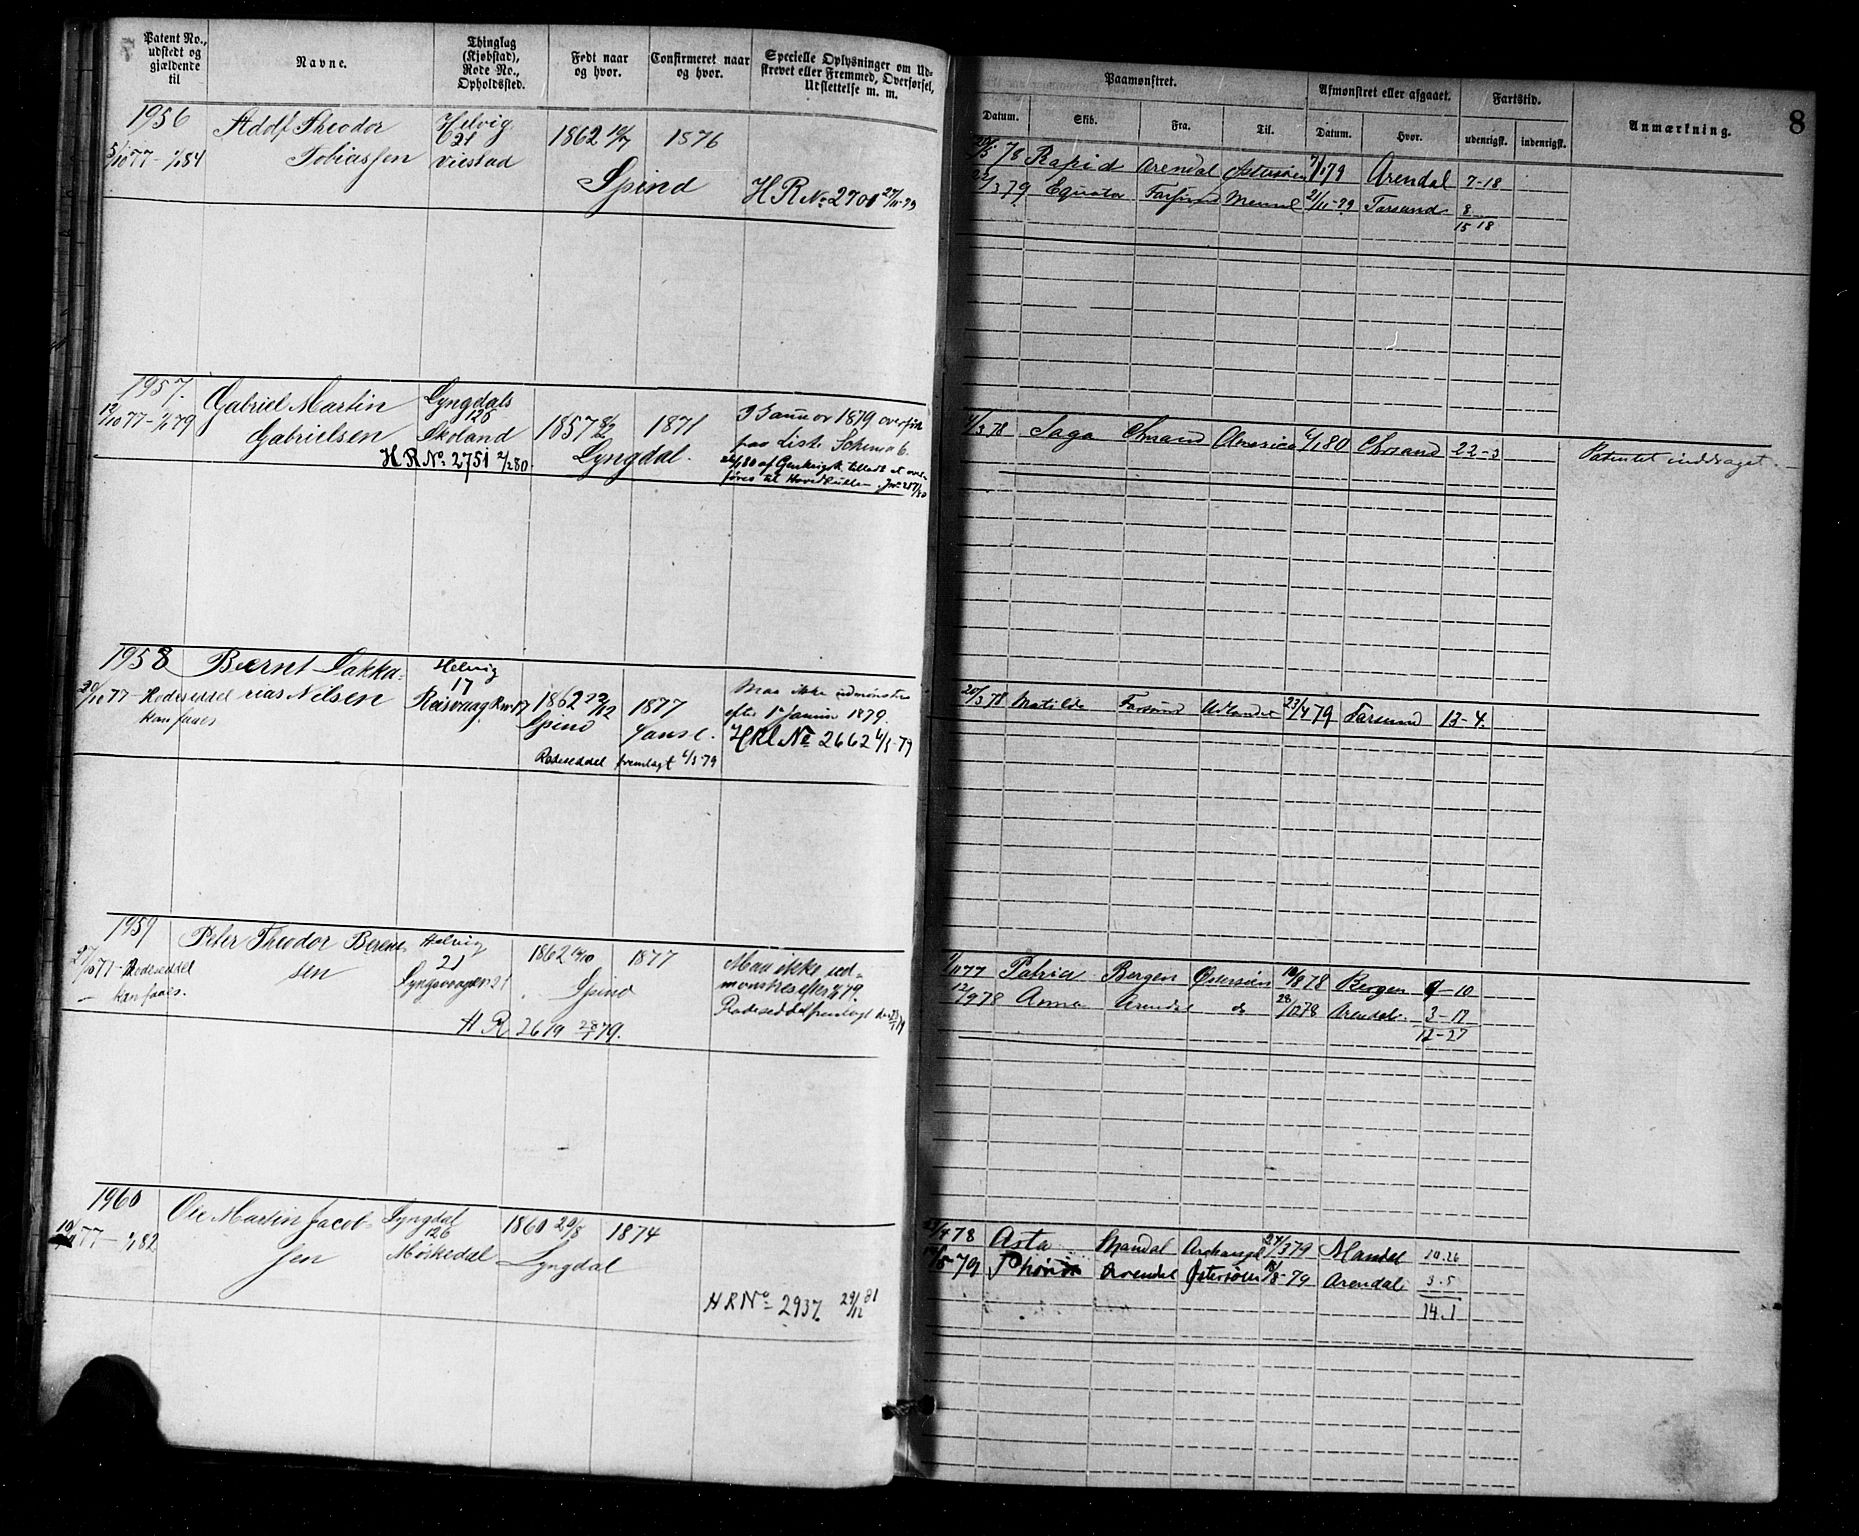 Patent No., udstedt og gjældende til
Navne.
Thinglag (Kjøbstad), Rode No., Opholdssted.
Født naar og hvor.
Confirmeret naar og hvor.
Specielle Oplysninger om Udskrevet eller Fremmed, Overførsel, Udslettelse m. m.
Paamønstret.
Afmønstret eller afgaaet.
Fartstid.
Anmærkning.
8
Datum.
Skib.
Fra.
Til.
Datum.
Hvor.
udenrigsk.
indenrigsk.
1956
5/10 77 – 1/1 84
Adolf Theodor
Tobiassen
Helvig
21
Viestad
1862
1876
Spind
H R No 2701 27/11-79
78 Rapid Arendal Østersøen 79 Arendal 7-18
3 79 Equator Farsund Memel 21/11-79 Farsund 8
15 18
1957.
12/10 77 – 1/1 79
Gabriel Martin
Gabrielsen
Lyngdals
126
Skoland
1857
1871
Lyngdal.
H R No. 2751 2/2 80.
I Januar 1879 overført
paa Liste Schema 6.
3 78 Saga Chrsand America 1 80 Chrsand 22-3
Patentet inddraget.
1958
77 – Rodeseddel
kan faaes
Bernt Sakka-
rias Nilsen
Helvig
17
1862 22/12
Spind
1877
Maa ikke udmønstres
efter 1 Januar 1879.
HRl No 2662 4/3-79
Rodeseddel fremlagt 4/3 79
20/3 78 Matilde Farsund Udlandet 23/4 79 Farsund 13-4.
1959
27/10 77 – Rodeseddel
– kan faaes.
Peter Theodor Berent-
sen
Helvig
21
1862
1877
Spind
Maa ikke ud-
mønstres efter 1/1 79.
Rodeseddel fremlagt
H R 2619 28/1 79.
11 77 Patria Bergen Østersøen 10/8 78 Bergen 9-10
12/9 78 Anna Arendal do 28/12 78 Arendal. 3-17
12-27
1960
77 – 1/1 82
Ole Martin Jacob-
sen
Lyngdal
126
Møskedal
1860 20/8
1874
Lyngdal
H R No 2937. 29/12 81
4 78 Asta Mandal Archangel 24/3 79 Mandal 10.26
5-79 Arendal Østersøen 8-79 Arendal 3.5
14.1